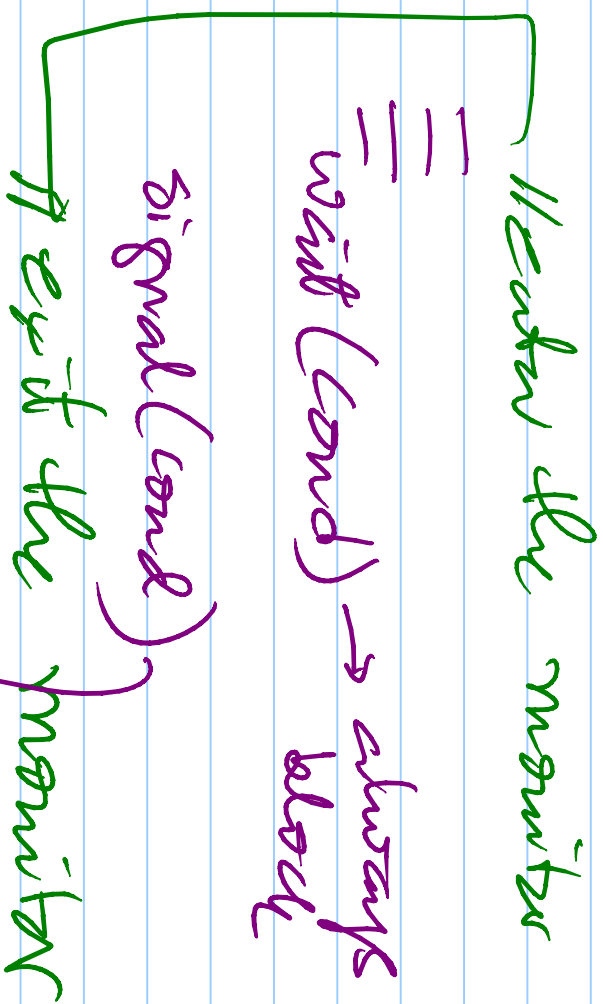 // enter the monitor
wait (cond) → always
block
signal (cond)
// exit the monitor